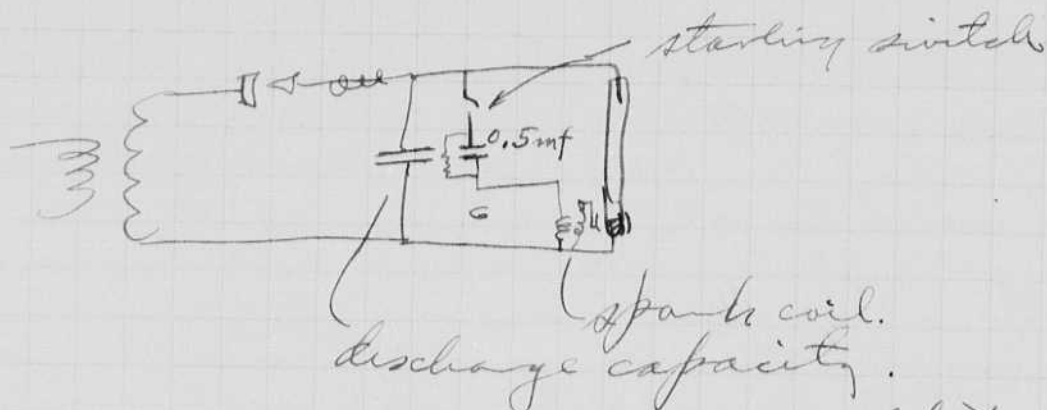 starting switch
0.5mf
spark coil.
discharge capacity.